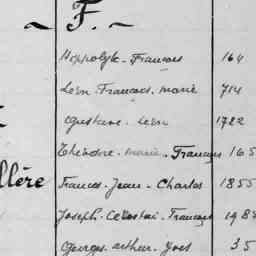 ~ F. ~
Hippolyte - François 164
Léon - François - marie 714
Gustave - Léon 1722
Théodore - marie - François 165
llère Francis - Jean - Charles 1855
Joseph - Célestin - François 198
Georges - arthur - Yves 35